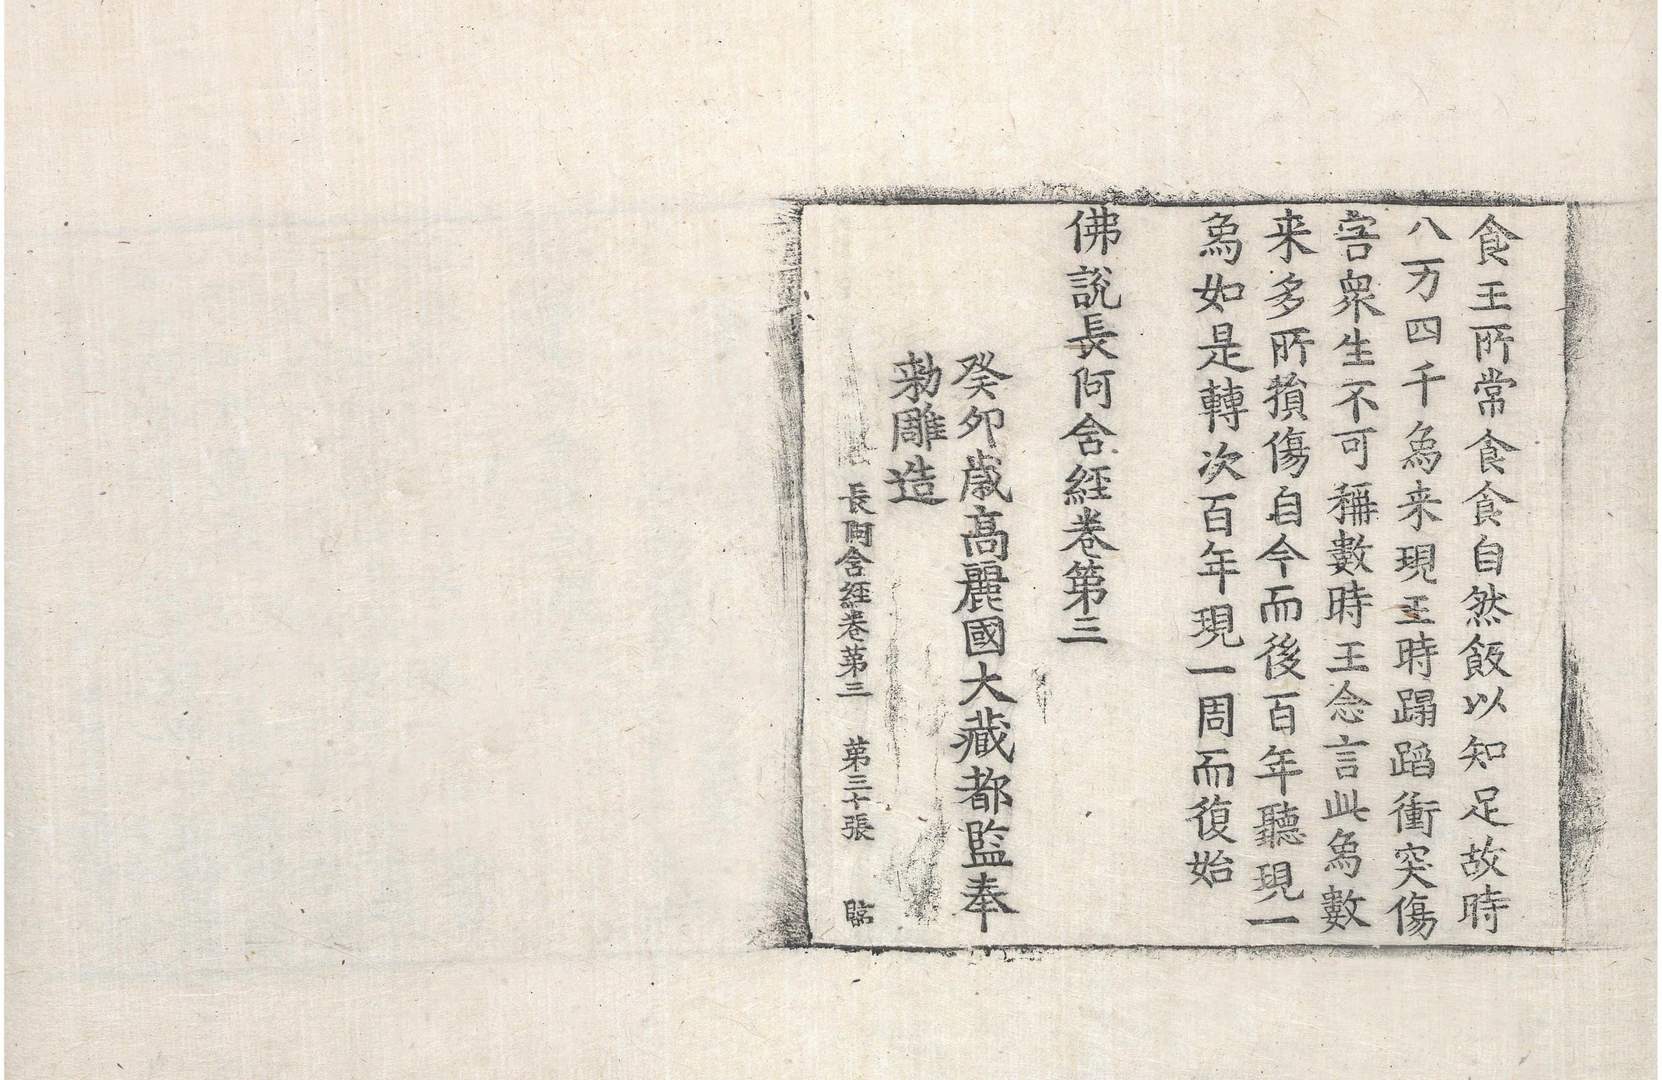 食王所常食食自然飯以知足故時
八万四千鳥来現王時蹋蹈衝突傷
害衆生不可稱數時王念言此鳥數
来多所損傷自今而後百年聽現一
鳥如是轉次百年現一周而復始
佛說長阿含經卷第三
癸卯歲高麗國大藏都監奉
勅雕造
長阿含經卷第三 第三十張 臨